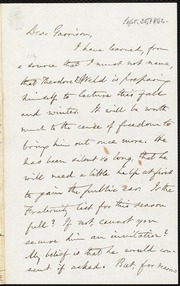 Sept. 25, 1862.
Dear Garrison,
I have learned, from
a source that I must not name,
that Theodore D. Weld is preparing
himself to lecture this fall
and winter. It will be worth
much to the cause of freedom to
bring him out once more. He
has been silent so long, that he
will need a little help at first
to gain the public ear. Is the
Fraternity list for this season
full? If not, cannot you
secure him an invitation?
My belief is that he would con-
sent if asked. But, for reasons